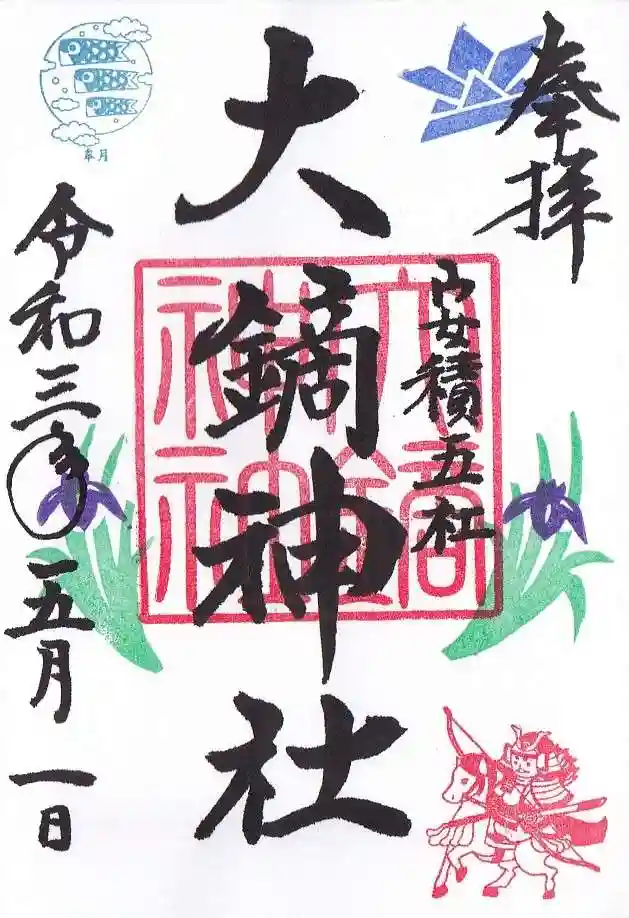 奉拝
安積五社
大鏑神社
令和三年五月一日
皐月